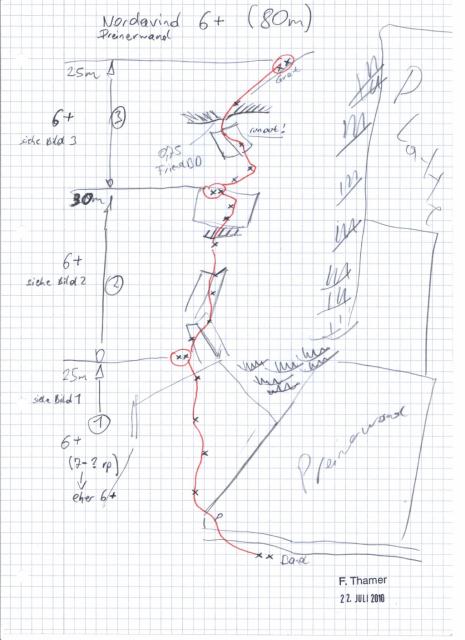 Nordavind 6+ (80m)
Preinerwand
25m
Grat
6+
③
siehe Bild 3
runout!
0,75
Friend BD
30m
6+
siehe Bild 2
②
25m
siehe Bild 1
①
6+
(7-? rp)
eher 6+
Preinerwand
Band
F. Thamer
22. JULI 2010